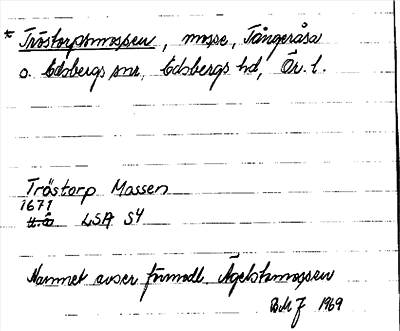 * Tröstorpsmossen, mosse, Tångeråsa
o. Edsbergs snr, Edsbergs hd, Ör. l.
Tröstorp Massen
1671
u.å. LSA S4
Namnet avser förmodl. Ägelstamossen
1969